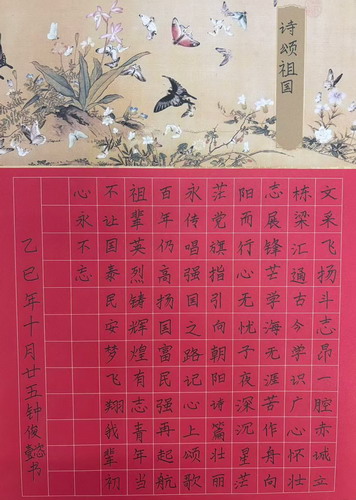 诗颂祖国
文采飞扬斗志昂一腔赤诚立
栋梁汇通古今学识广心怀壮
志展锋苦学海无涯苦作身向
阳而行心无忧子夜深沉星茫
茫党旗指引向朝阳诗篇壮丽
永传唱强国之路记心上颂歌
百年仍高扬国富民强再起航
祖辈英烈铸辉煌有志青年当
不让国泰民安梦飞翔我辈初
心永不忘
乙巳年十月廿五钟俊懿书